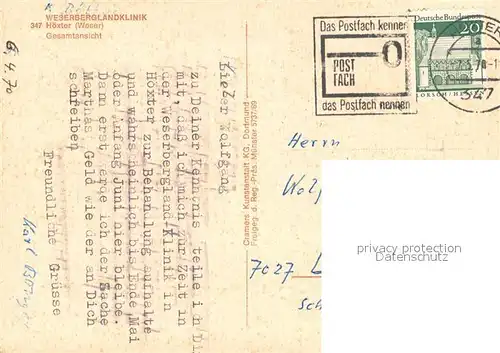 WESERBERGLANDKLINIK
347 Höxter (Weser)
Gesamtansicht
6.4.70
Lieber Wolfgang
zu Deiner Kenntnis teile ich Di
mit, daß ich mich zur Zeit in
der Weserbergland/Klinik in
Höxter zur Behandlung aufhalte
und wahrscheinlich bis Ende Mai
oder Anfang Juni hier bleibe.
Dann erst erde ich der Sache
Marthas Geld wie der an Dich
schreiben
Freundliche Grüsse
Karl
Cramers Kunstanstalt KG, Dortmund
Freigeg. d. Reg.-Präs. Münster 5737/69
Das Postfach kennen
POST
FACH
das Postfach nennen
Deutsche Bundespost
20
LORSCH/HESSEN
347
Herrn
Wolf
7027 L
privacy protection
Datenschutz